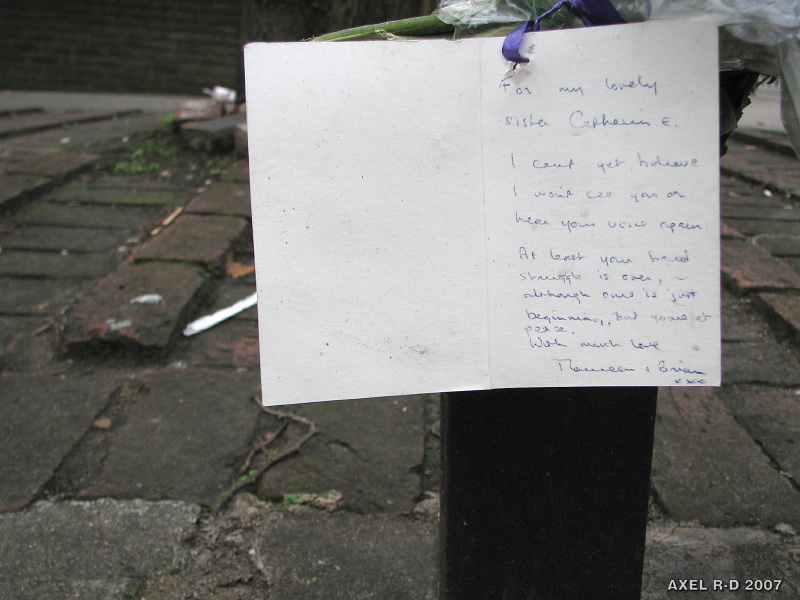 For my lovely
sister Catherine.
I can't yet believe
I won't see you or
hear your voice again
At least your hard
struggle is over,
although ours is just
beginning, but you're at
peace.
With much love
Maureen + Brian
xxx
AXEL R-D 2007